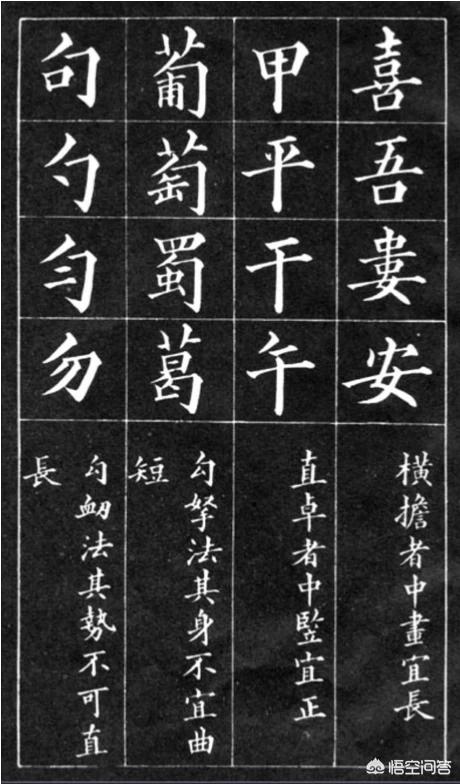 喜吾婁安
橫擔者中畫宜長
甲平干午
直卓者中竪宜正
葡萄蜀葛
勾拏法其身不宜曲
短
句勺勻勿
勾衂法其勢不可直
長
悟空问答